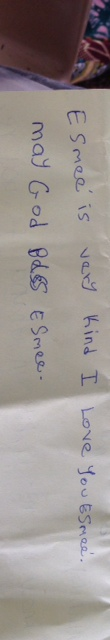 Esmeé is very kind I Love You Esmeé.
may God Bless Esmee.